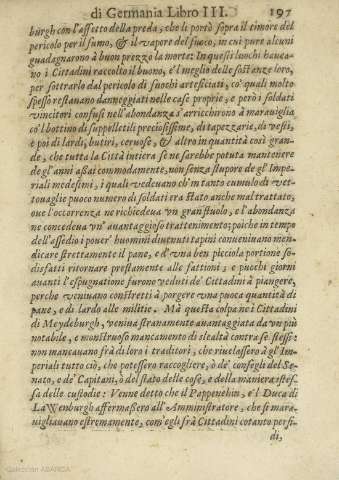 di Germania Libro III. 197
burgh con l'assetto della preda, che li portò sopra il timore del
pericolo per il fumo, & il vapore del fuoco, in cui pure alcuni
guadagnarono à buon prezzo la morte: In questi luochi hauea-
no i Cittadini raccolto il buono, e'l meglio delle sostanze loro,
per sottrarlo dal pericolo de fuochi artificiati, cò quali molto
spesso restauano danneggiati nelle case proprie, e però i soldati
vincitori confusi nell'abondanza s'arricchirono à marauiglia
cò'l bottino di suppelletili preciosissime, di tapezzarie, di vesti,
e poi di lardi, butiri, ceruose, & altro in quantità così gran-
de, che tutta la Città intiera se ne sarebbe potuta mantenere
de gl'anni assai commodamente, non senza stupore de gl'Impe-
riali medesimi, i quali vedeuano ch'm tanto cumulo di vet-
touaglie puoco numero di soldati era stato anche mal trattato,
oue l'occorrenza ne richiedeua vn granstuolo, e l'abondanza
ne concedeua vn'auantaggioso trattenimento; poiche in tempo
dell'assedio i poueri huomini diuenuti tapini conueniuano men-
dicare strettamente il pane, e d'vna ben picciola portione so-
disfatti ritornare prestamente alle fattioni; e puochi giorni
auanti l'espugnatione furono veduti de' Cittadini à piangere,
perche veniuano constretti à porgere vna puoca quantità di
pane, e di lardo alle militie. Mà questa colpa nè i Cittadini
di Meydeburgh, veniua stranamente auantaggiata da vn più
notabile, e monstruoso mancamento di slealtà contra se stesse:
non mancauano frà di loro i traditori, che riuelassero à gl'Im-
periali tutto ciò, che potessero raccogliere, ò de' consegli del Se-
nato, e de' Capitani, ò del stato delle cose, e della maniera istes-
sa delle custodie: Venne detto che il Pappenehin, e'l Duca di
LaWenburgh affermassero all'Amministratore, che si mara-
uigliauano estremamente, com'egli frà Cittadini cotanto perfi-
di,